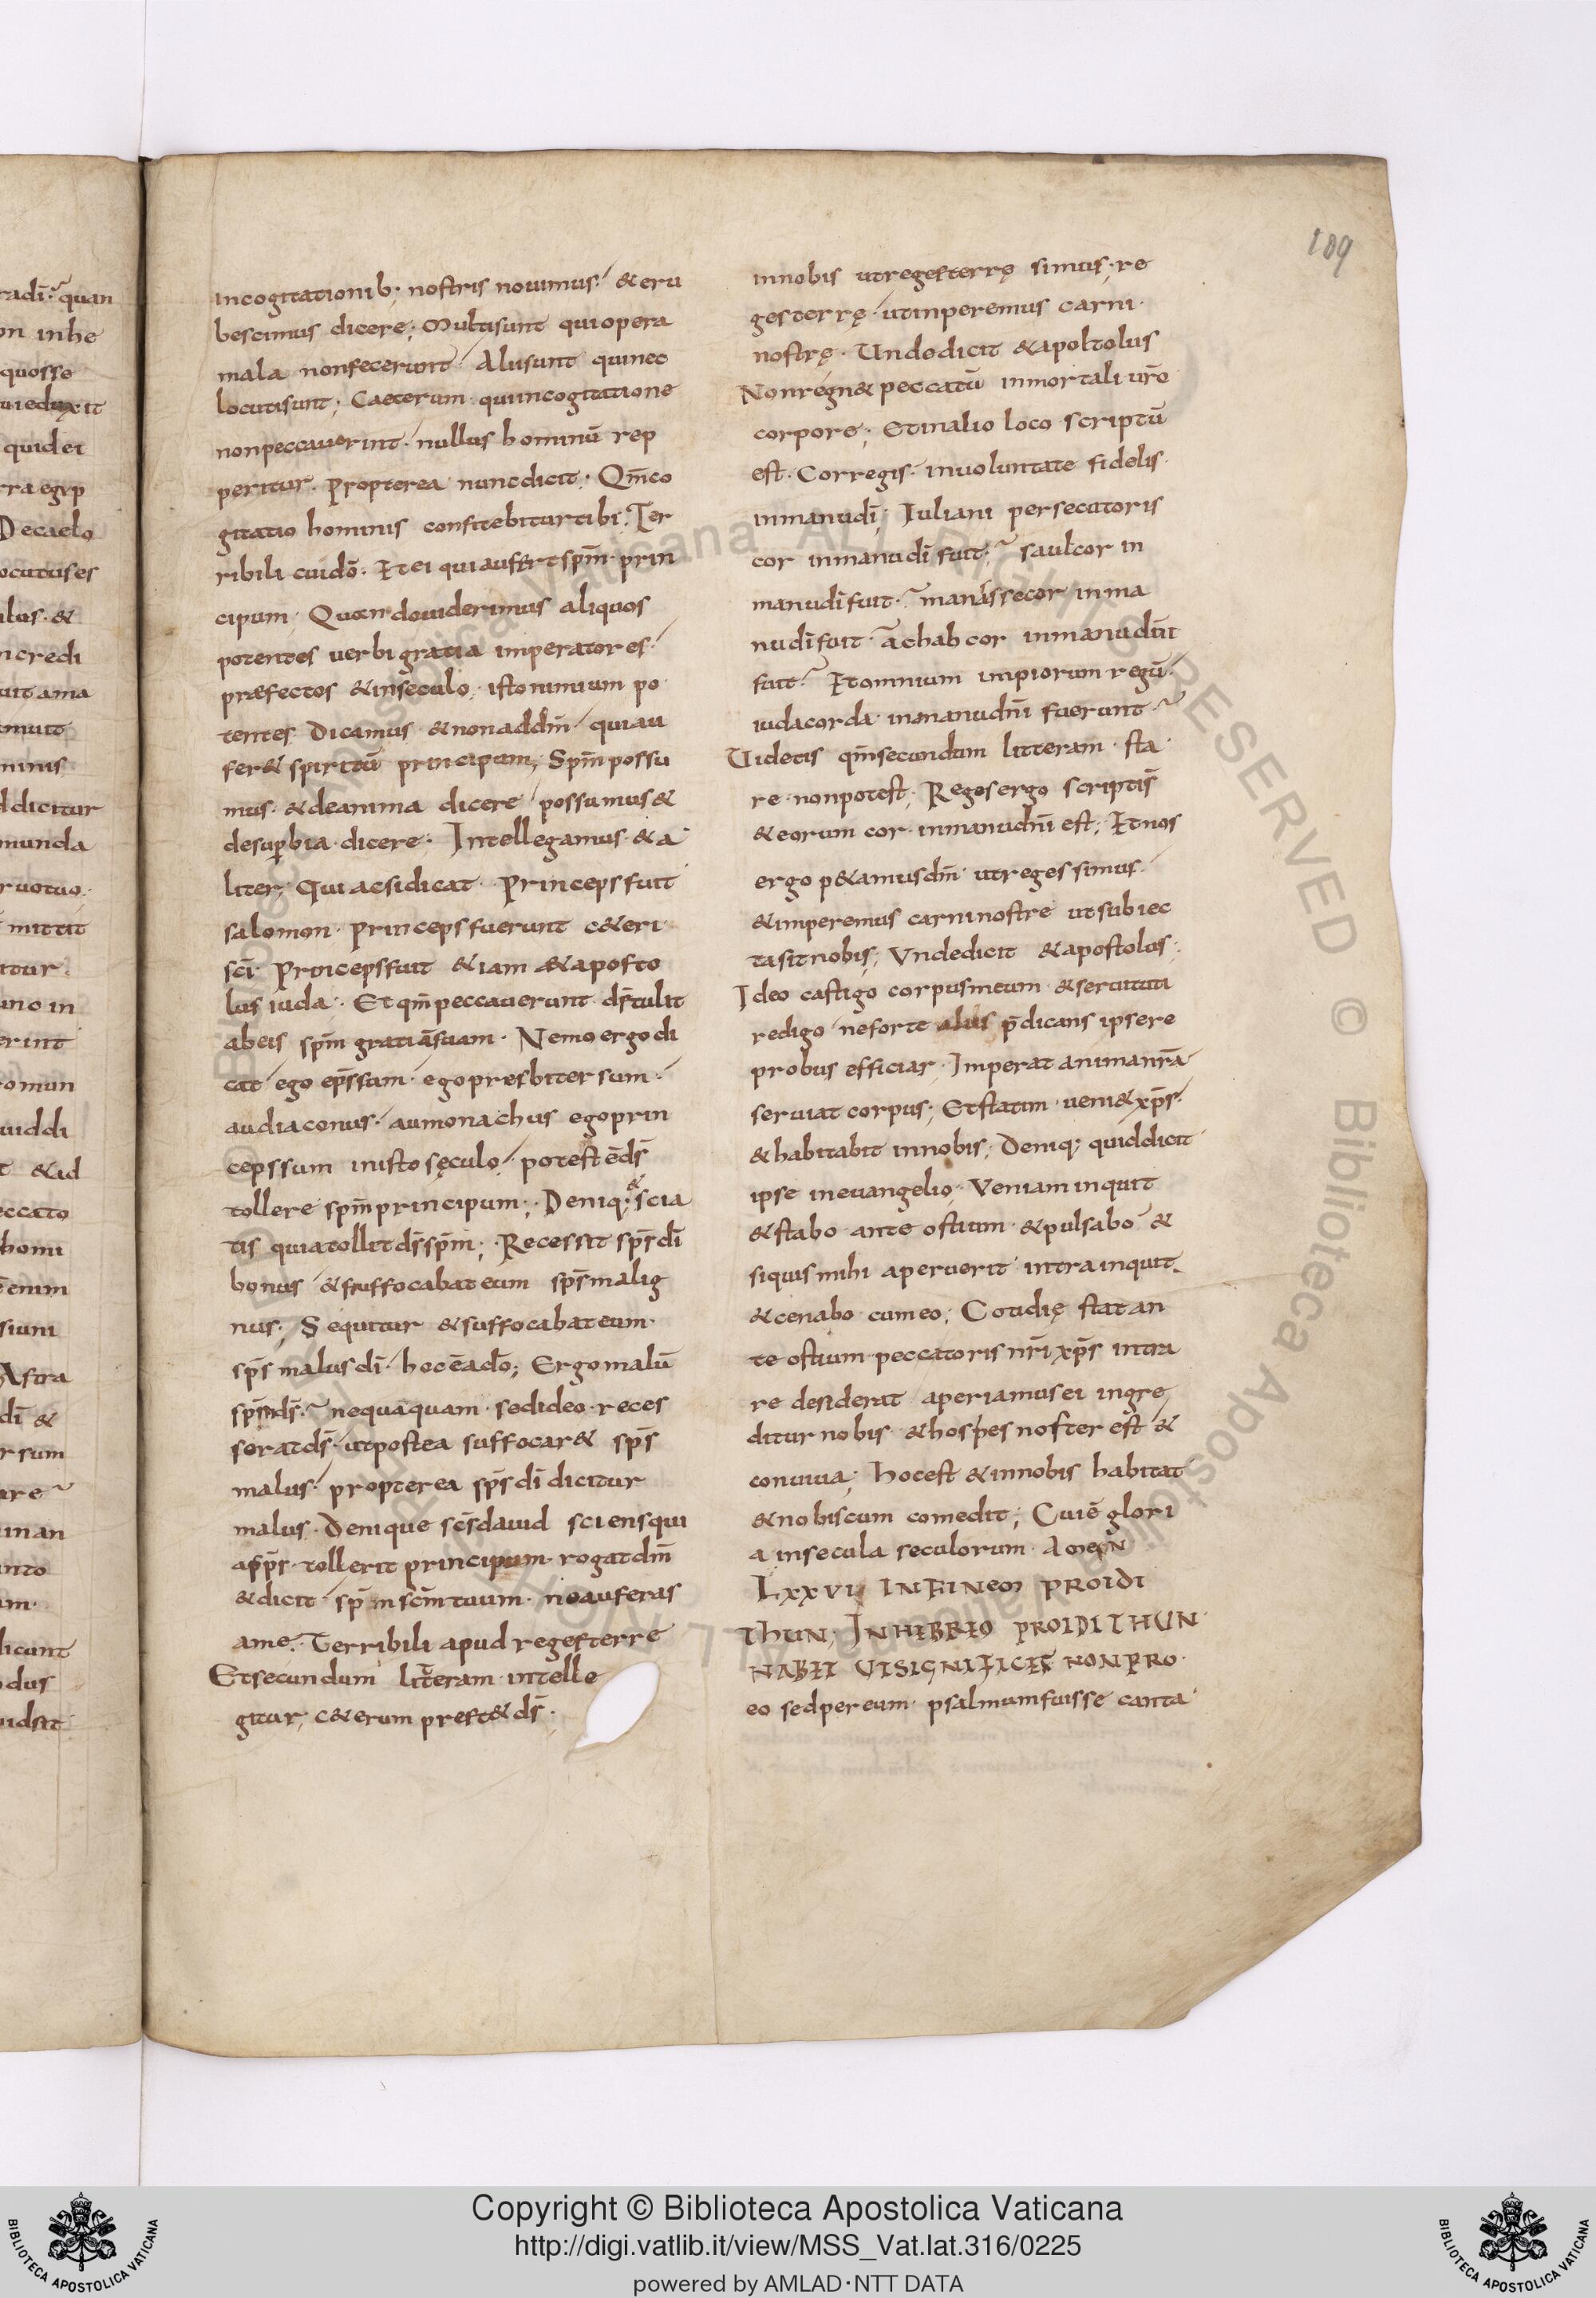 109
incogitationib; nostris nouimus. & eru
bescimus dicere; Multisunt quiopera
mala nonfecerunt. Aliisunt quinec
locutisunt; Caeterum quiincogitatione
nonpeccauerint. nullus hominū rep
peritur. Propterea nuncdicit. Qm̄co
gitatio hominis confitebiturtibi. Ter
ribili cuidō. Et ei quiauffert spm̄ prin
cipum. Quandouiderimus aliquos
potentes uerbi gratia imperatores.
præfectos &inseculo istonimium po
tentes dicamus &nonaddm̄ quiau
fer& spiritū principum; Spm̄ possu
mus &deanima dicere possumus &
desuꝑbia dicere. Intellegamus &a
liter; Quiacsidicat Princepsfuit
salomon. Princepsfuerunt c&eri
sc̄i. Princepsfuit &iam &aposto
lus iuda. Et qm̄ peccauerunt ds̄tulit
abeis spm̄ gratiāsuam. Nemo ergo di
cat ego ep̄ssum. ego presbiter sum.
audiaconus. aumonachus egoprin
cepssum inisto sęculo. potest ē ds̄
tollere spm̄principum; Deniq; & scia
tis quiatollit ds̄ spm̄; Recessit sps̄ dī
bonus &suffocabateum sps̄malig
nus; Sequitur &suffocabateum
sps̄ malus dī. hoc ē adō; Ergo malū
sps̄ds̄. nequaquam sedideo reces
serat ds̄ utpostea suffocar& sps̄
malus. propterea sps̄ dī dicitur
malus. Denique sc̄sdauid sciensqui
asps̄ tollerit principum. rogatdm̄
&dicit spm̄ sc̄m tuum. neauferas
ame. Terribili apud regesterre
Etsecundum litteram intelle
gitur; c&erum prest& ds̄.
innobis utregesterrę simus; re
gesterrę utinperemus carni
nostrę. Undedicit &apostolus
Nonregn& peccatū inmortali ur̄o
corpore; Etinalio loco scriptū
est. Corregis inuoluntate fidelis
inmanudī; Iuliani persecutoris
cor inmanudī fuit. saul cor in
manudīfuit. manassecor inma
nudīfuit. achab cor inmanudni
fuit. Etomnium impiorum regū
iudacorda inmanudn̄i fuerunt.
Uidetis qm̄secundum litteram sta
re nonpotest; Regesergo scriptis
&eorum cor inmanudn̄i est; Etnos
ergo p&amusdm̄ utreges simus.
&imperemus carninostre utsubiec
tasitnobis; Undedicit &apostolus
Ideo castigo corpusmeum &seruituti
redigo neforte aliis p̄dicans ipsere
probus efficiar. Imperat animanr̄a
seruiat corpus; Etstatim ueni&xps̄.
&habitabit innobis; Deniq; quiddicit
ipse ineuangelio. Veniam inquit
&stabo ante ostium &pulsabo &
siquis mihi aperuerit intra inquit.
&cenabo cumeo; Cotidię statan
te ostium peccatoris nr̄i xps̄ intra
re desiderat aperiamusei ingre
ditur nobis &hospes noster est &
conuiua; hocest &innobis habitat
&nobiscum comedit; Cuiē glori
a insecula seculorum. Amen
LXXVI INFINEM PROIDI
THUN; INHEBREO PROIDITHUN
HABET UTSIGNIFICET NONPRO
eo sedpereum psalmumfuisse canta